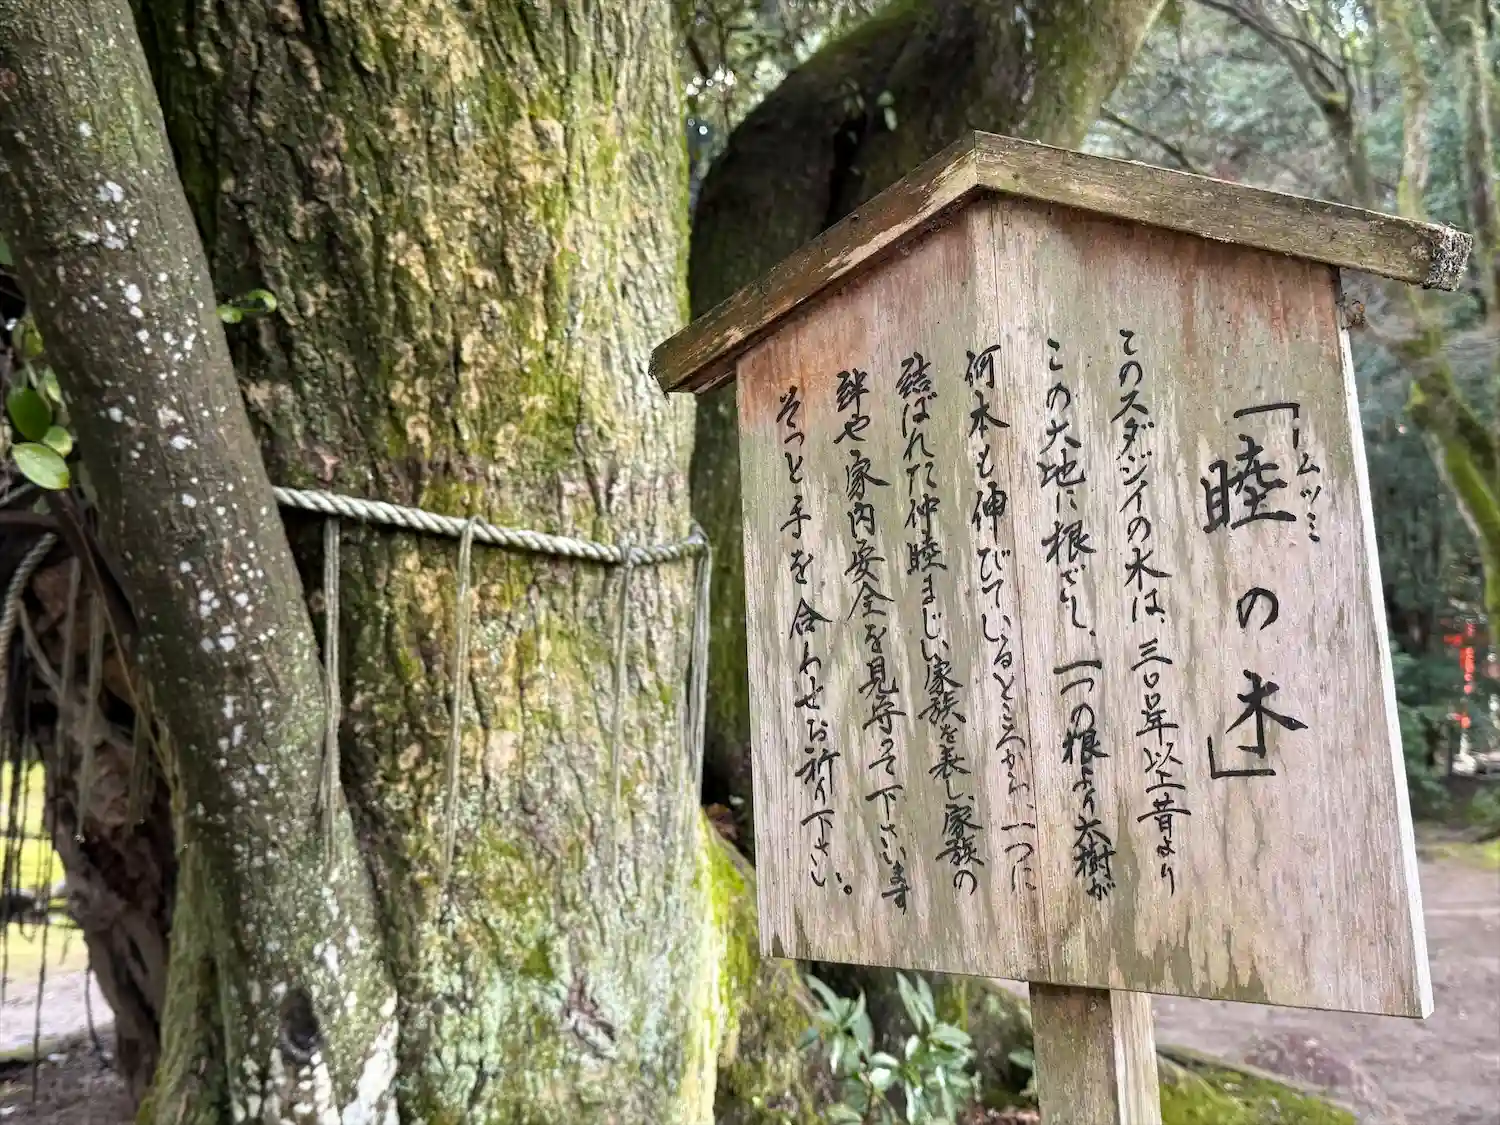 「睦の木」
ームツミ
このスダジイの木は、三〇年以上昔より
この大地に根ざし、一つの根より大樹が
何本も伸びているところから、一つに
結ばれた仲睦まじい家族を表し、家族の
絆や家内安全を見守って下さいます
そっと手を合わせお祈り下さい。